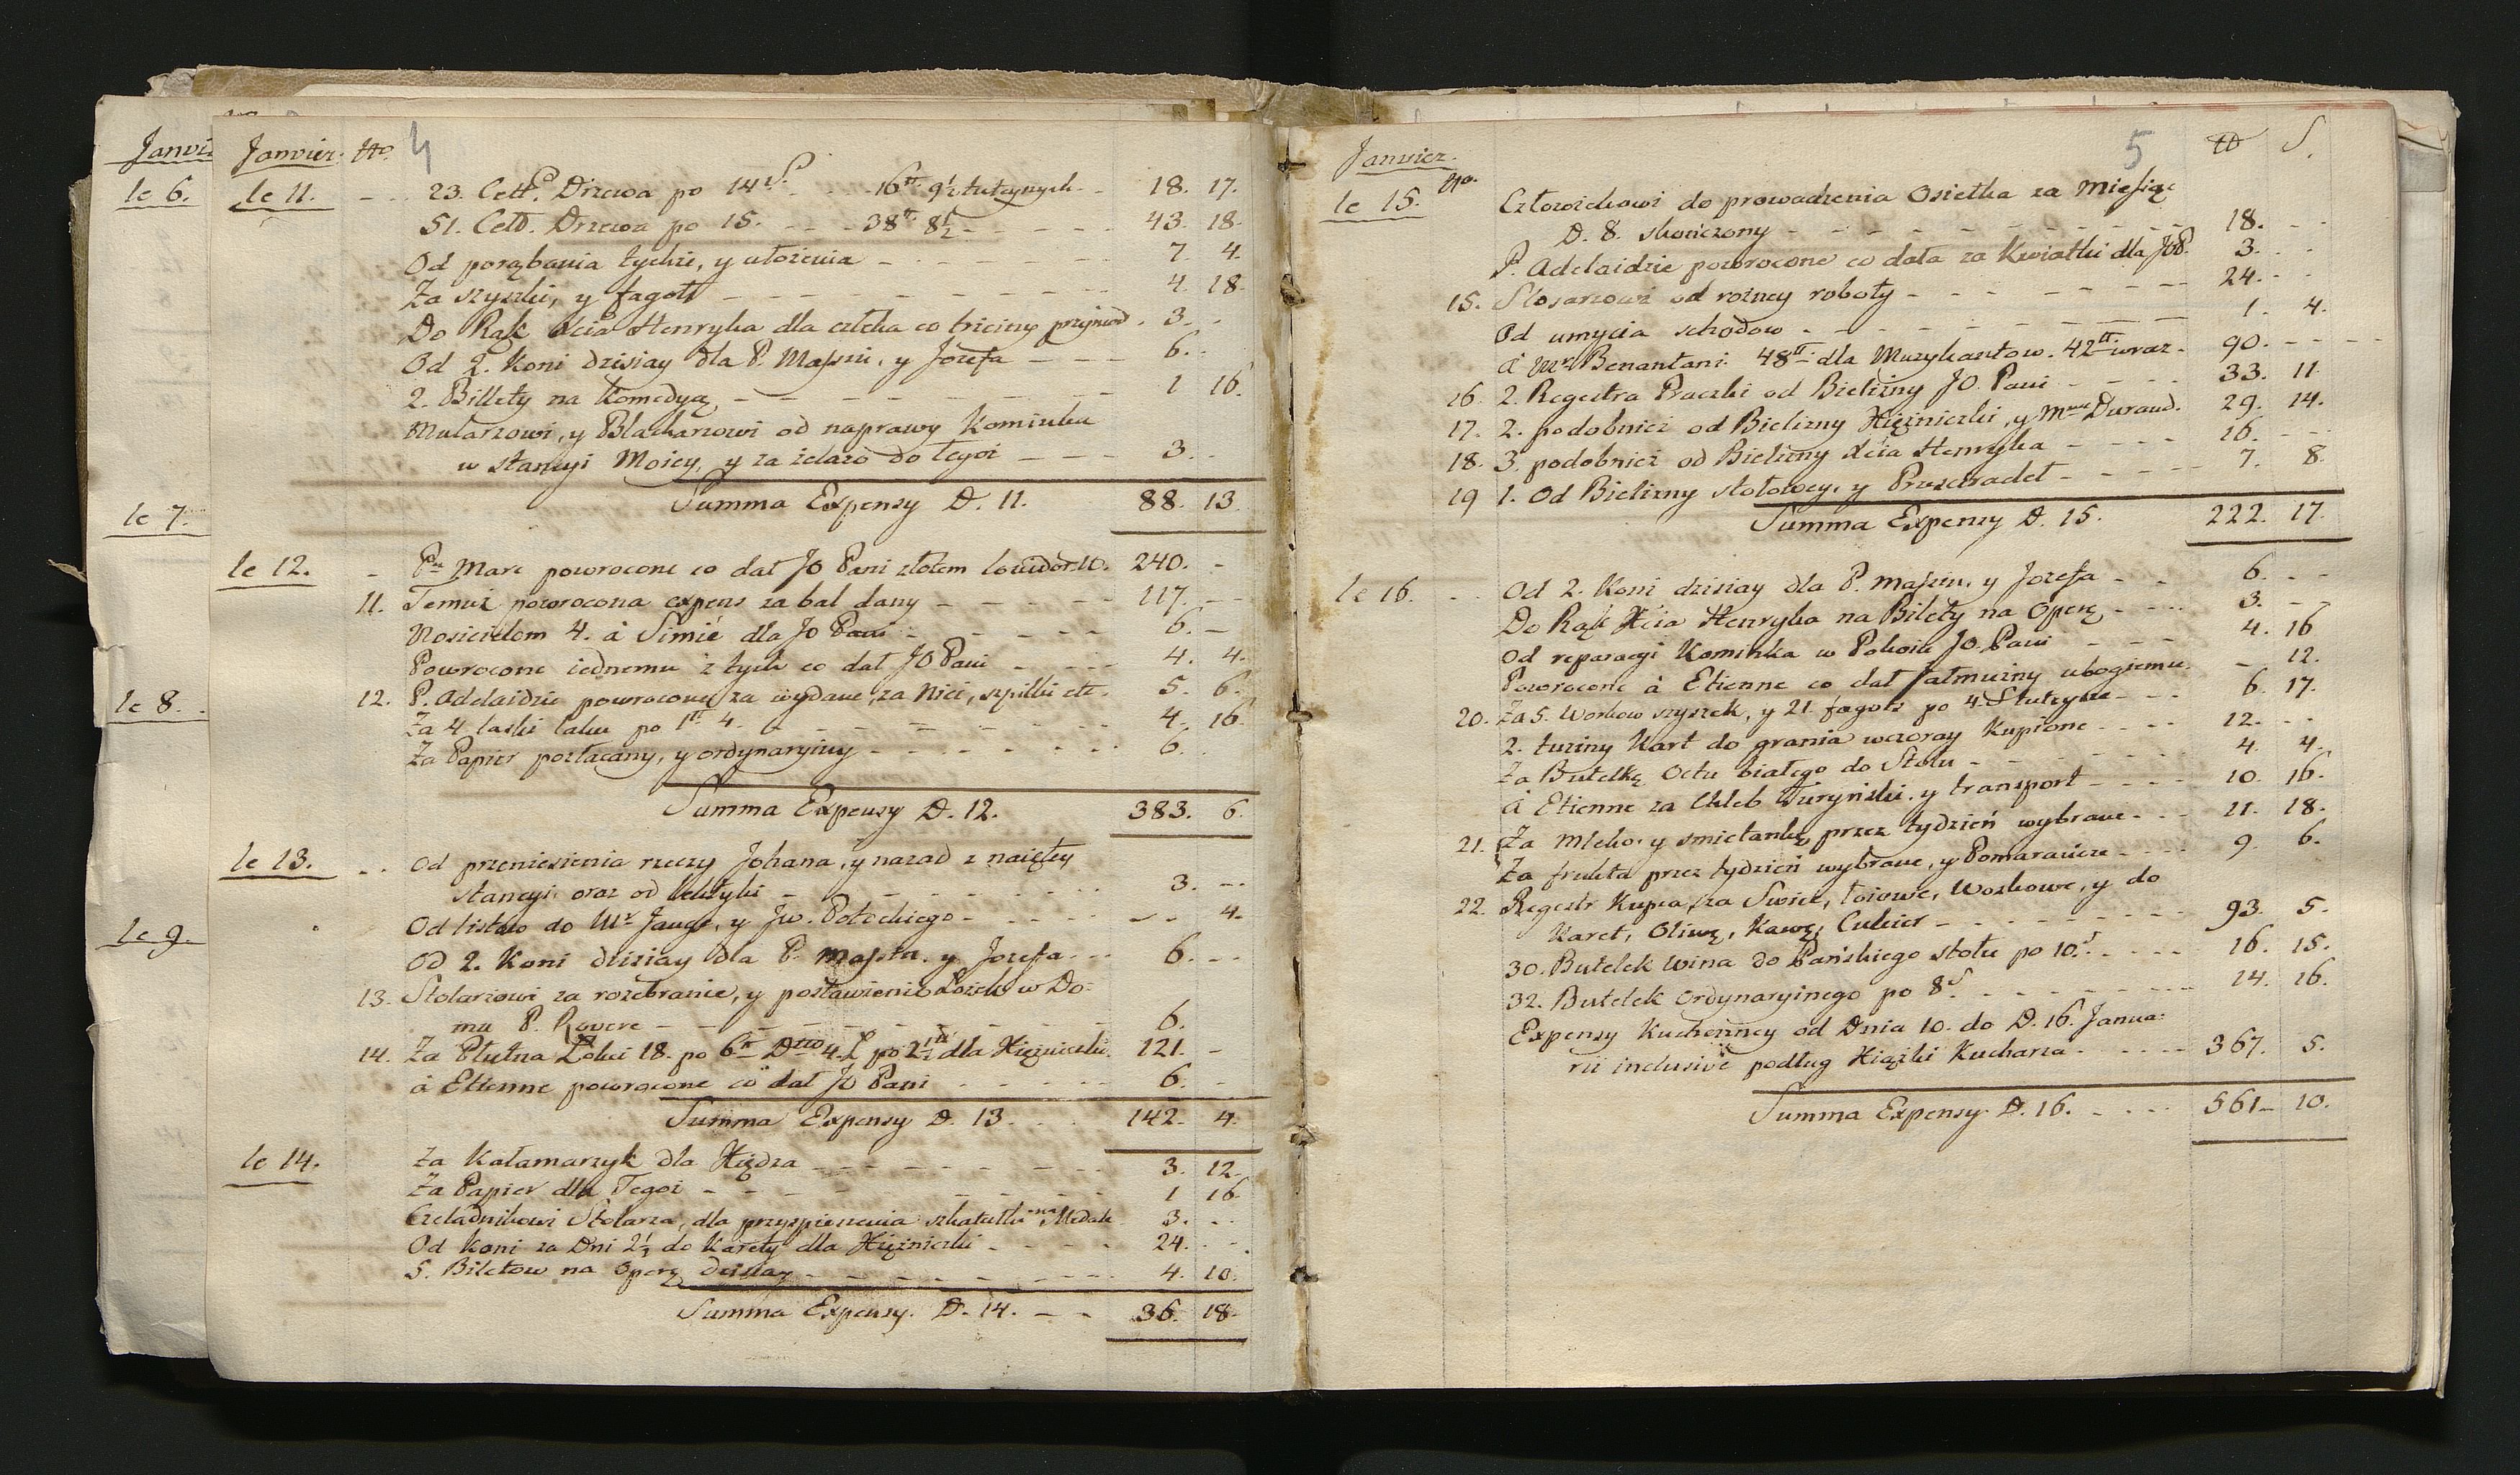 Janvi
le 6.
le 7.
le 8.
le 9.
Janvier. No. 4
le 11. 23. Cett. Drzewa po 14 S. 16 tt 9 1/2 tutzynych 18. 17.
51. Cett. Drzewa po 15. 38 tt 8 1/2 43. 18.
Od porąbania tychże, y ułożenia 7. 4.
Za szyszki, y fagoty 4. 18.
Do Rąk Xcia Henryka dla człeka co trzcinę przyniosł. 3.
Od 2. Koni dzisiay dla P. Massui, y Jozefa 6.
2. Billety na Komedyą 1 16.
Mularzowi, y Blacharzowi od naprawy Kominka
w stancyi Moiey, y za żelazo do tegoż 3.
Summa Expensy D. 11. 88. 13
le 12. Pu Marc powrocone co dał JO Pani złotem louidor. 10. 240. -
11. Temuż powrocona expens za bal dany 117.
Nosicielom 4. à Simié dla Jo Pani 6. -
Powrocone iednemu z tych co dał JO Pani 4. 4.
12. P. Adelaidzie powrocony za wydane, za Nici, szpilki etc. 5. 6.
Za 4 laski laku po 1 tt 4. 4. 16.
Za Papier pozłacany, y ordynaryiny 6.
Summa Expensy D. 12. 383. 6.
le 13. Od przeniesienia rzeczy Johana, y nazad z naiętey
stancyi oraz od lektyki 3. --
Od listow do Mr Jauge, y Jw. Potockiego 4.
Od 2. Koni dzisiay dla P. Massui. y Jozefa 6. --
13. Stolarzowi za rozebranie, y postawienie Łożek w Do=
mu P. Rovere 6.
14. Za Płutna Łokci 18. po 6 tt Dtto 4. Ł po 2 1/2 tt dla Xiężniczki. 121. -
à Etienne powrocone co dał Jo Pani 6. -
Summa Expensy D. 13. 142. 4.
le 14. Za Kałamarzyk dla Xiędza 3. 12.
Za Papier dla Tegoż 1 16.
Czeladnikowi Stolarza, dla przyspieszenia szkatułki na Medale 3. --
Od koni za Dni 2 1/2 do Karety dla Xiężniczki 24. --
5. Biletow na Operę dzisiay 4. 10.
Summa Expensy. D. 14. 36. 18.
Janvier. 5 tt S.
le 15. No. Człowiekowi do prowadzenia Osiełka za Miesiąc
D. 8. skończony 18. --
P. Adelaidzie powrocone co dała za Kwiatki dla JOP. 3. --
15. Slosarzowi od rożney roboty 24. --
Od umycia schodow 1. 4.
à Mr Benantani 48 tt dla Muzykantow. 42 tt wraz 90. --
16. 2. Regestra Praczki od Bielizny JO. Pani 33. 11
17. 2. podobnież od Bielizny Xiężniczki, y Mme Durand. 29. 14.
18. 3. podobnież od Bielizny Xcia Henryka 16. --
19 1. Od Bielizny stołowey, y Przescieradeł 7. 8
Summa Expensy D. 15. 222. 17.
le 16. Od 2. Koni dzisiay dla P. Massui, y Jozefa 6. --
Do Rąk Xcia Henryka na Bilety na Operę 3. --
Od reparacyi Kominka w Pokoiu JO. Pani 4. 16
Powrocone à Etienne co dał jałmużny ubogiemu - 12.
20. Za 5. Workow szyszek, y 21. fagots po 4. S tutzyne 6. 17.
2. tuziny Kart do grania wczoray Kupione 12. --
Za Butelkę Octu białego do Stołu 4. 4.
à Etienne za Chleb Turyński, y transport 10. 16.
21. Za Mleko. y smietankę przez tydzień wybrane 11. 18.
Za frukta przez tydzień wybrane, y Pomarańcze 9. 6.
22. Regestr Kupca, za Swiece, łoiowe, Woskowe, y do
Karet, Oliwę, Kawę, Cukier 93. 5.
30. Butelek Wina do Pańskiego stołu po 10 S. 16. 15.
32. Butelek ordynaryinego po 8 S 14. 16.
Expensy Kuchenney od Dnia 10. do D. 16. Janua:
rii inclusive podług Xiążki Kucharza 367. 5.
Summa Expensy. D. 16. 561 10.